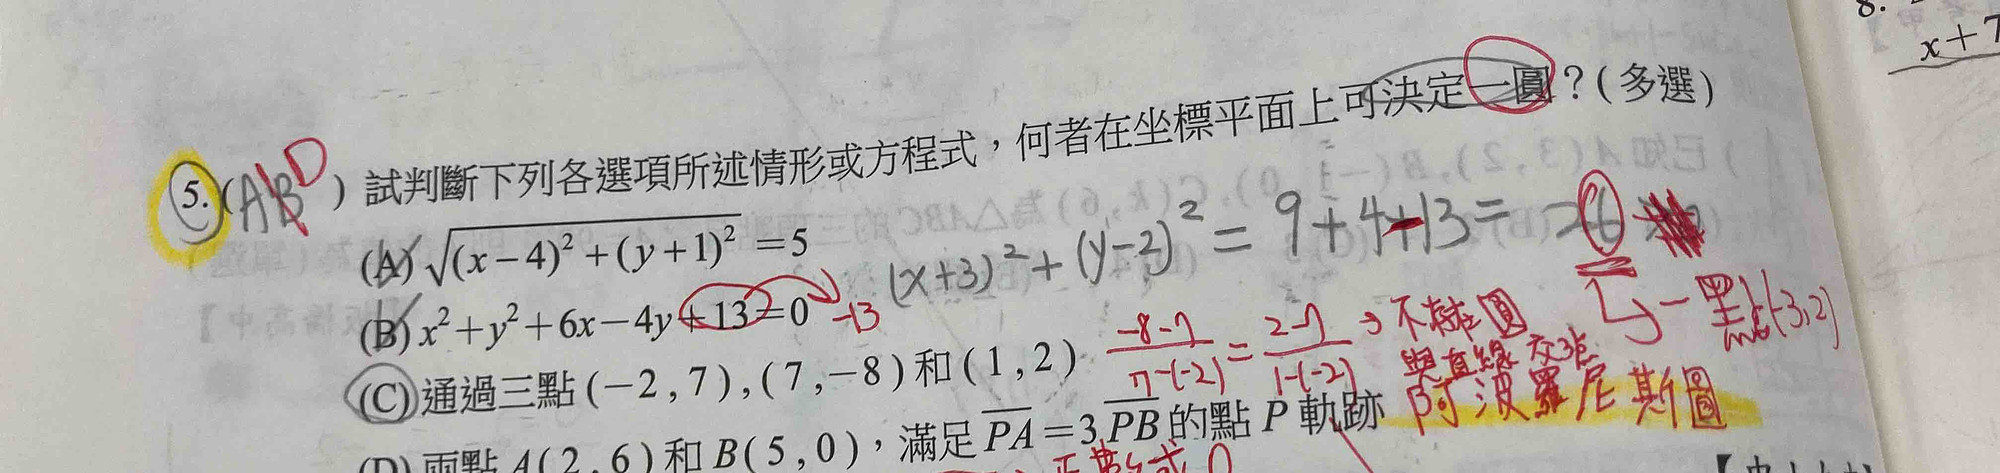 8.
x+7
5.(ABD) 試判斷下列各選項所述情形或方程式，何者在坐標平面上可決定一圓？(多選)
(A) √((x−4)²+(y+1)²) =5
(x+3)²+(y−2)²=9+4−13=
(B) x²+y²+6x−4y+13=0 −13
一點(-3,2)
(C) 通過三點(−2,7),(7,−8)和(1,2) (-8-7)/(7-(-2)) = (2-7)/(1-(-2)) → 不存在圓
與直線交
(D) 兩點A(2,6)和B(5,0)，滿足PA=3PB的點P軌跡 阿波羅尼斯圓